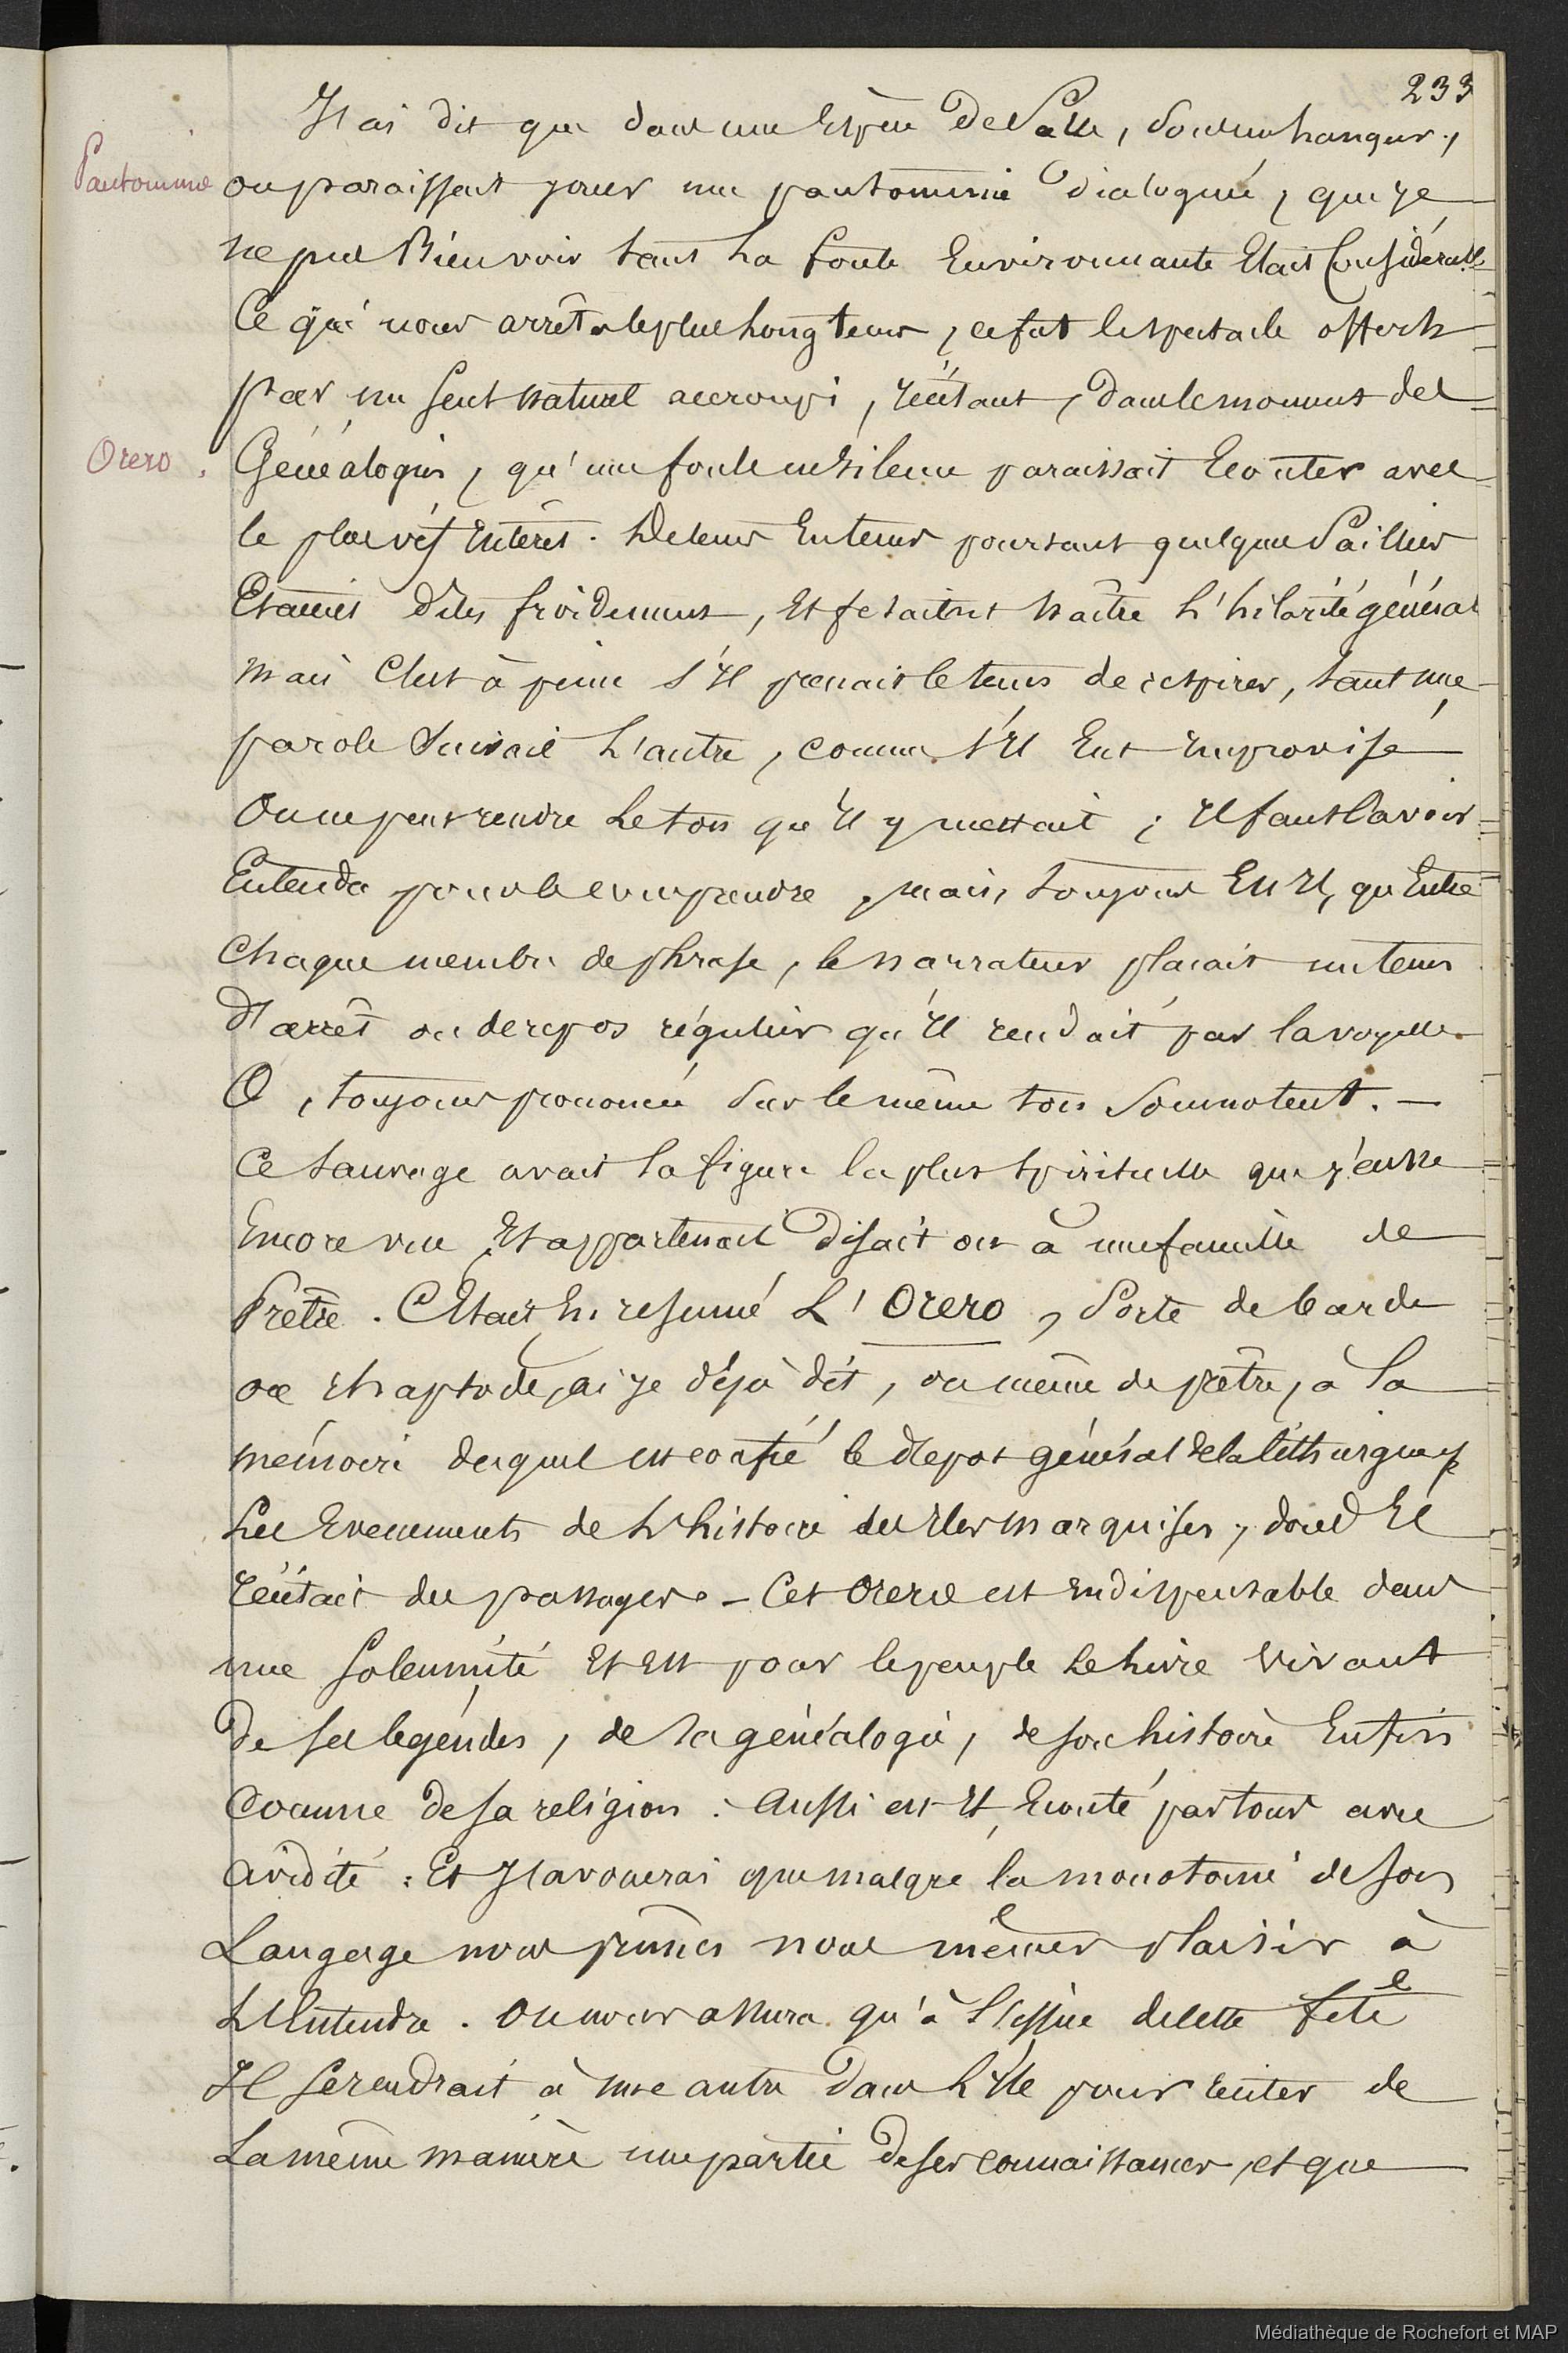 233
J'ai dit que dans une Espèce De Salle, sous un hangar,
Pantomime
on paraissait jouer une pantomime dialoguée, que je
ne pus Bien voir tant La foule Environnante Etait Considérable
Ce qui nous arrêta le plus Longtems, ce fut le spectacle offert
par un seul naturel accroupi, récitant, dans le moment des
Orero.
Généalogies, qu'une foule en silence paraissait Ecouter avec
le plus vif intérêt. De tems En tems pourtant quelques Saillies
Etaient dites froidement, Et fesaient naître L'hilarité général
mais C'est à peine s'Il prenait le tems de respirer, tant une
parole suivait L'autre, comme s'Il Eut Improvisé
On ne peut rendre Le ton qu'Il y mettait ; Il faut L'avoir
Entendu pour le comprendre, mais, toujours Est Il, qu'Entre
Chaque membre de phrase, le narrateur plaçait un tems
D'arrêt ou de repos régulier qu'Il rendait par la voyelle
O, toujours prononcée sur le même ton Somnolent. —
Ce Sauvage avait la figure la plus Spirituelle que j'eusse
Encore vue Et appartenait disait on à une famille de
Prêtre. C'Etait En resumé L'Orero, Sorte de barde
ou rhapsode, ai je déjà dit, ou même de prêtre, à La
mémoire duquel est confié le dépot général de la lithurgie &
Les Evenements de L'histoire des Iles marquises, dont Il
récitait des passages. — Cet Orero est indispensable dans
une Solennité Et Est pour le peuple Le Livre Vivant
De ses legendes, de sa généalogie, de son histoire Enfin
Comme de sa religion : Aussi est Il Ecouté par tous avec
avidité : Et J'avouerai que malgré la monotonie de son
Langage nous primes nous mêmes plaisir à
L'Entendre. On nous assura qu'à L'issue de cette fete
Il se rendrait à une autre dans L'Ile pour reciter de
La même manière une partie De ses connaissances, et que
Médiathèque de Rochefort et MAP